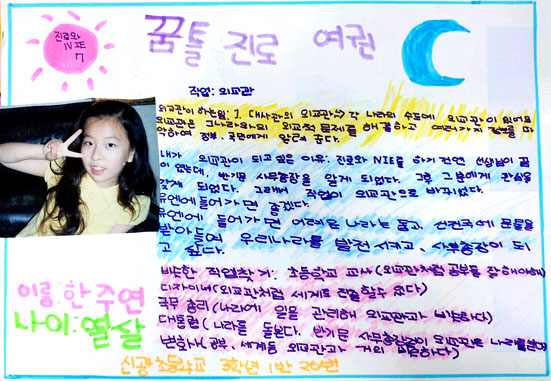 진로와
NIE
7
꿈틀 진로 여권
직업: 외교관
외교관이 하는일: 1. 대사관의 외교관 각 나라의 수도에 외교관이 있어요
외교관은 그나라와의 외교적 문제를 해결하고 여러가지 정보를 파
악하여 정부, 국민에게 알려 준다.
내가 외교관이 되고 싶은 이유: 진로와 NIE를 하기 전엔 선생님이 꿈
이었는데, 반기문 사무총장을 알게 되었다. 그후 그분에게 관심을
갖게 되었다. 그래서 직업이 외교관으로 바뀌었다.
유엔에 들어가면 좋겠다.
유엔에 들어가면 어려운 나라는 돕고, 선진국에 문물을
받아들여 우리나라를 발전 시키고, 사무총장이 되
고 싶다.
비슷한 직업찾기: 초등학교 교사(외교관처럼 공부를 잘해야해)
디자이너(외교관처럼 세계로 진출할수 있다)
국무 총리(나라에 일을 관리해 외교관과 비슷하다)
대통령(나라를 돌본다. 반기문 사무총장같이 외교관은 나라를
변호사(공부, 세계등 외교관과 거의 비슷하다)
이름: 한주연
나이: 열살
신광초등학교 3학년 1반 26번